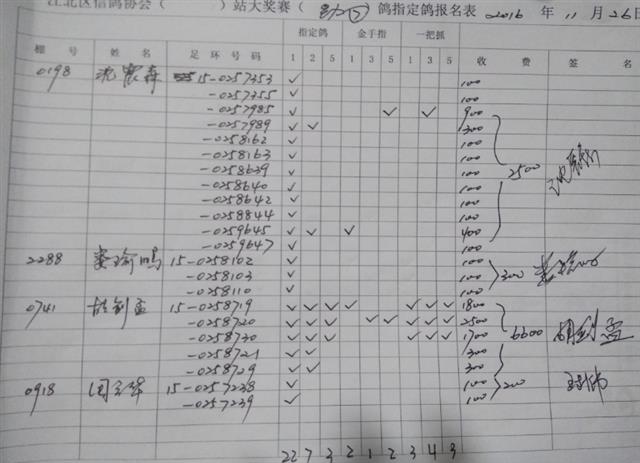 江北区信鸽协会（ ）站大奖赛（ ）鸽指定鸽报名表 2016 年 11 月 26日
指定鸽 金手指 一把抓
棚 号 姓 名 足 环 号 码 1 2 5 1 3 5 1 3 5 收 费 签 名
0198 15-0257353 ✓ 100
-0257355 ✓ 100
-0257985 ✓ ✓ ✓ 900
-0257989 ✓ ✓ 300
-0258162 ✓ 100
-0258163 ✓ 100
-0258639 ✓ 100 2500
-0258640 ✓ 100
-0258642 ✓ 100
-0258844 ✓ 100
-0259645 ✓ ✓ ✓ 400
-0259647 ✓ 100
2288 娄 鸣 15-0258102 ✓ 100
-0258103 ✓ 100 300
-0258110 ✓ 100
0741 胡剑孟 15-0258719 ✓ ✓ ✓ ✓ ✓ ✓ ✓ 1800
-0258720 ✓ ✓ ✓ ✓ ✓ ✓ ✓ ✓ 2500
-0258730 ✓ ✓ ✓ ✓ ✓ ✓ 1700 6600 胡剑孟
-0258721 ✓ ✓ 300
-0258729 ✓ ✓ 300
0918 15-0257238 ✓ 100 200
-0257239 ✓ 100
22 7 3 2 1 2 3 4 3